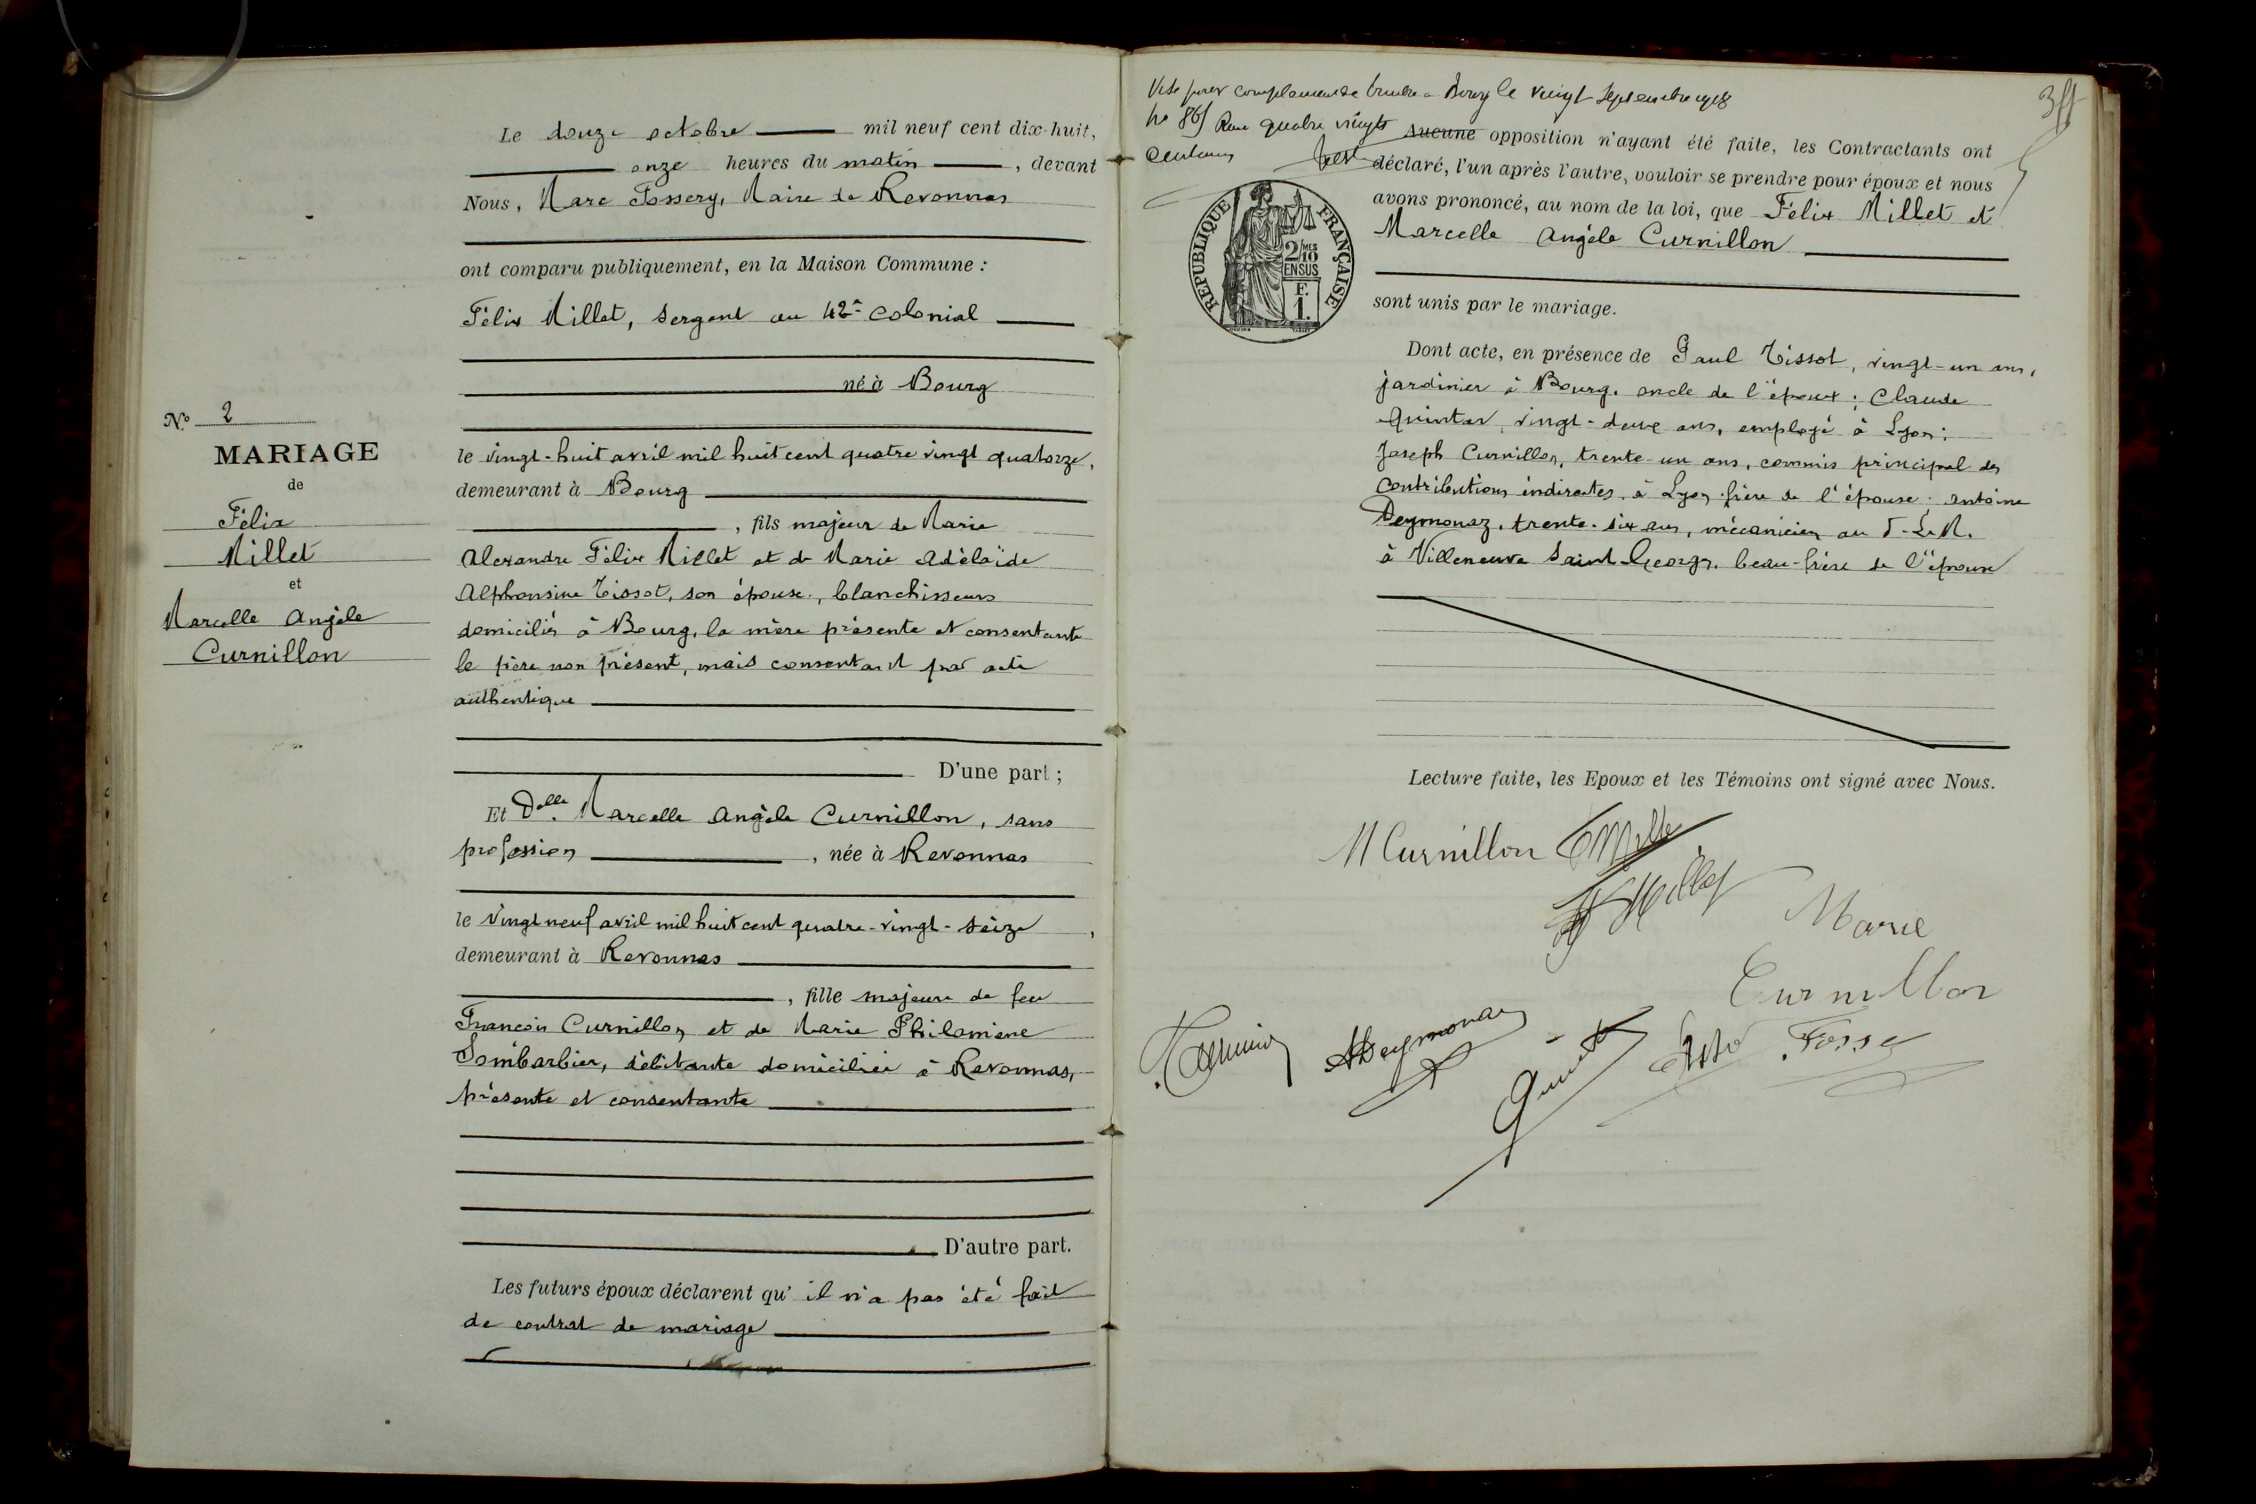 Le douze octobre mil neuf cent dix-huit,
onze heures du matin, devant
Nous, Marc Fossery, Maire de Revonnas
ont comparu publiquement, en la Maison Commune :
Félix Millet, sergent au 42e colonial
né à Bourg
le vingt-huit avril mil huit cent quatre vingt quatorze,
demeurant à Bourg
, fils majeur de Marie
Alexandre Félix Millet et de Marie Adélaïde
Alphonsine Tissot, son épouse, blanchisseurs
domiciliés à Bourg, la mère présente et consentante
le père non présent, mais consentant par acte
authentique
D'une part ;
Et Delle Marcelle Angèle Curnillon, sans
profession, née à Revonnas
le vingt neuf avril mil huit cent quatre-vingt-seize,
demeurant à Revonnas
, fille majeure de feu
François Curnillon et de Marie Philomène
Sombarbier, débitante domiciliée à Revonnas,
présente et consentante
D'autre part.
Les futurs époux déclarent qu'il n'a pas été fait
de contrat de mariage
N.º 2
MARIAGE
de
Félix
Millet
et
Marcelle Angèle
Curnillon
Visé pour complément de timbre à Bourg le vingt septembre 1918
No 861 quatre vingts
centimes
Aucune opposition n'ayant été faite, les Contractants ont
déclaré, l'un après l'autre, vouloir se prendre pour époux et nous
avons prononcé, au nom de la loi, que Félix Millet et
Marcelle Angèle Curnillon
sont unis par le mariage.
RÉPUBLIQUE FRANÇAISE
2/10 MES
EN SUS
F.
1.
Dont acte, en présence de Paul Tissot, vingt-un ans,
jardinier à Bourg, oncle de l'époux ; Claude
Quintar, vingt-deux ans, employé à Lyon ;
Joseph Curnillon, trente-un ans, commis principal des
contributions indirectes, à Lyon frère de l'épouse ; Antoine
Deymonaz, trente-six ans, mécanicien au P.L.M.
à Villeneuve Saint-Georges, beau-frère de l'épouse
Lecture faite, les Epoux et les Témoins ont signé avec Nous.
M Curnillon
Millet
Marie
Curnillon
ADeymonaz